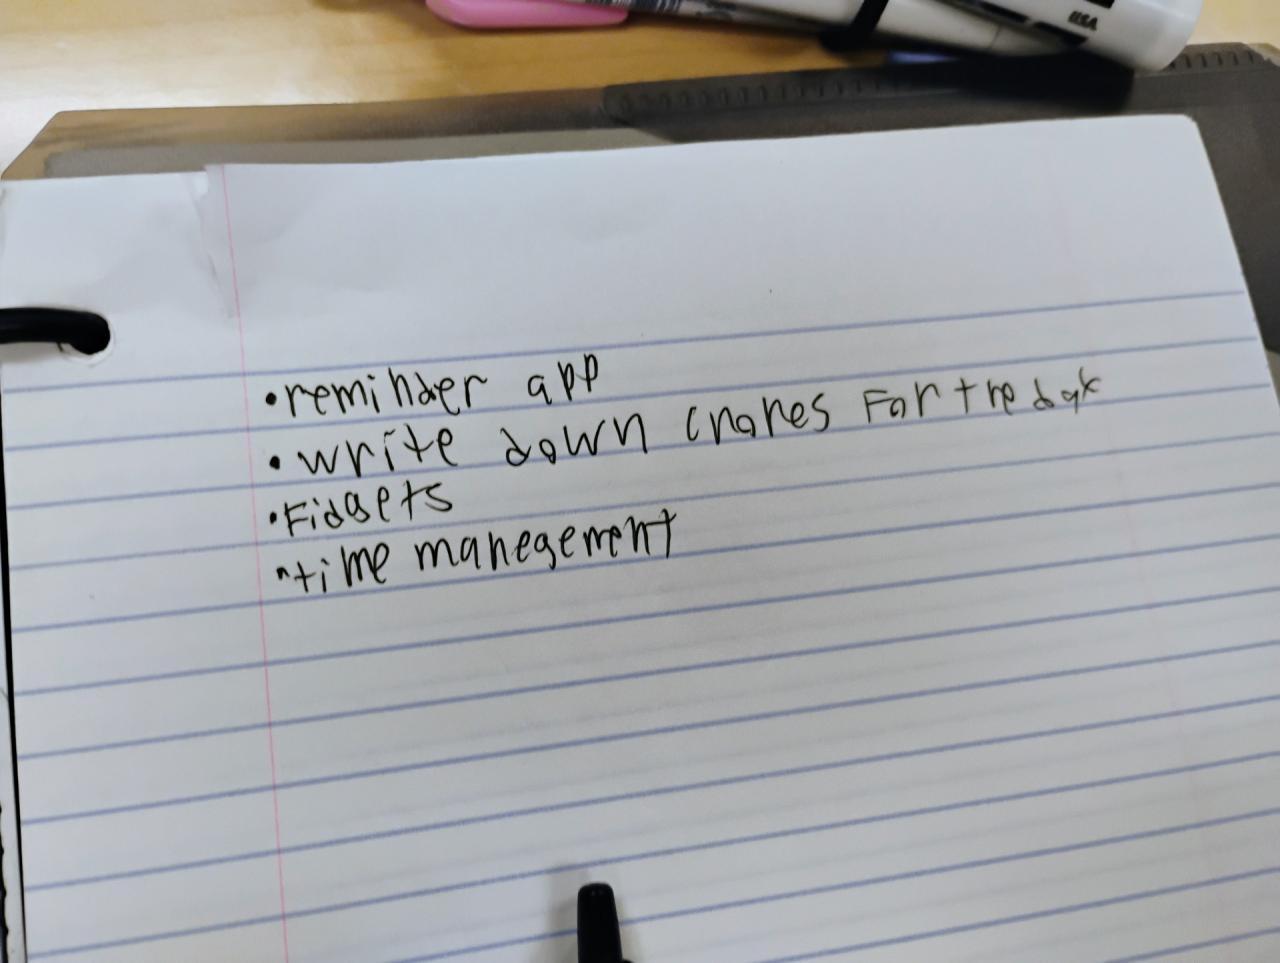 USA
• reminder app
• write down chores For the day
• Fidgets
• time manegement